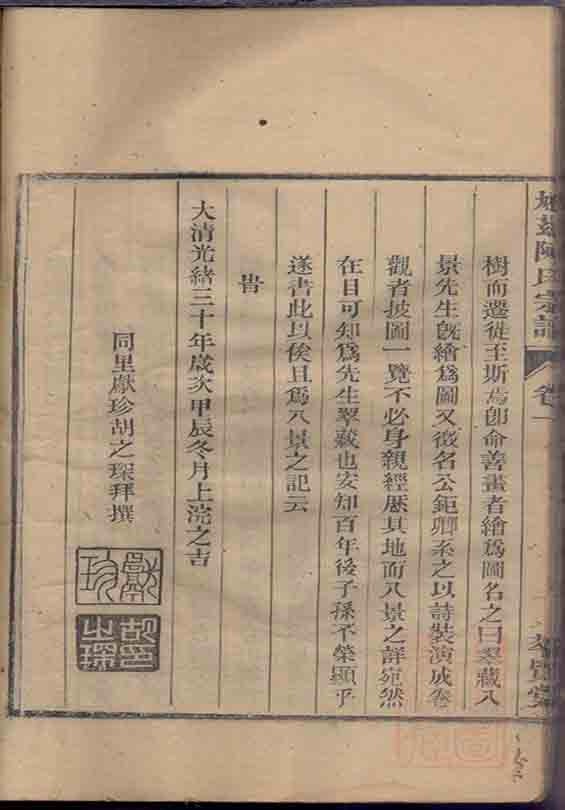 陳氏宗譜 卷一
樹而遷徙至斯焉卽命善畫者繪爲圖名之曰翠藏八
景先生旣繪爲圖又徵名公鉅卿系之以詩裝演成卷
觀者披圖一覽不必身親經歷其地而八景之詳宛然
在目可知爲先生翠藏也安知百年後子孫不榮顯乎
遂書此以俟且爲八景之記云
旹
大清光緒三十年歲次甲辰冬月上浣之吉
同里獻珍胡之琛拜撰
獻珍
胡之琛印